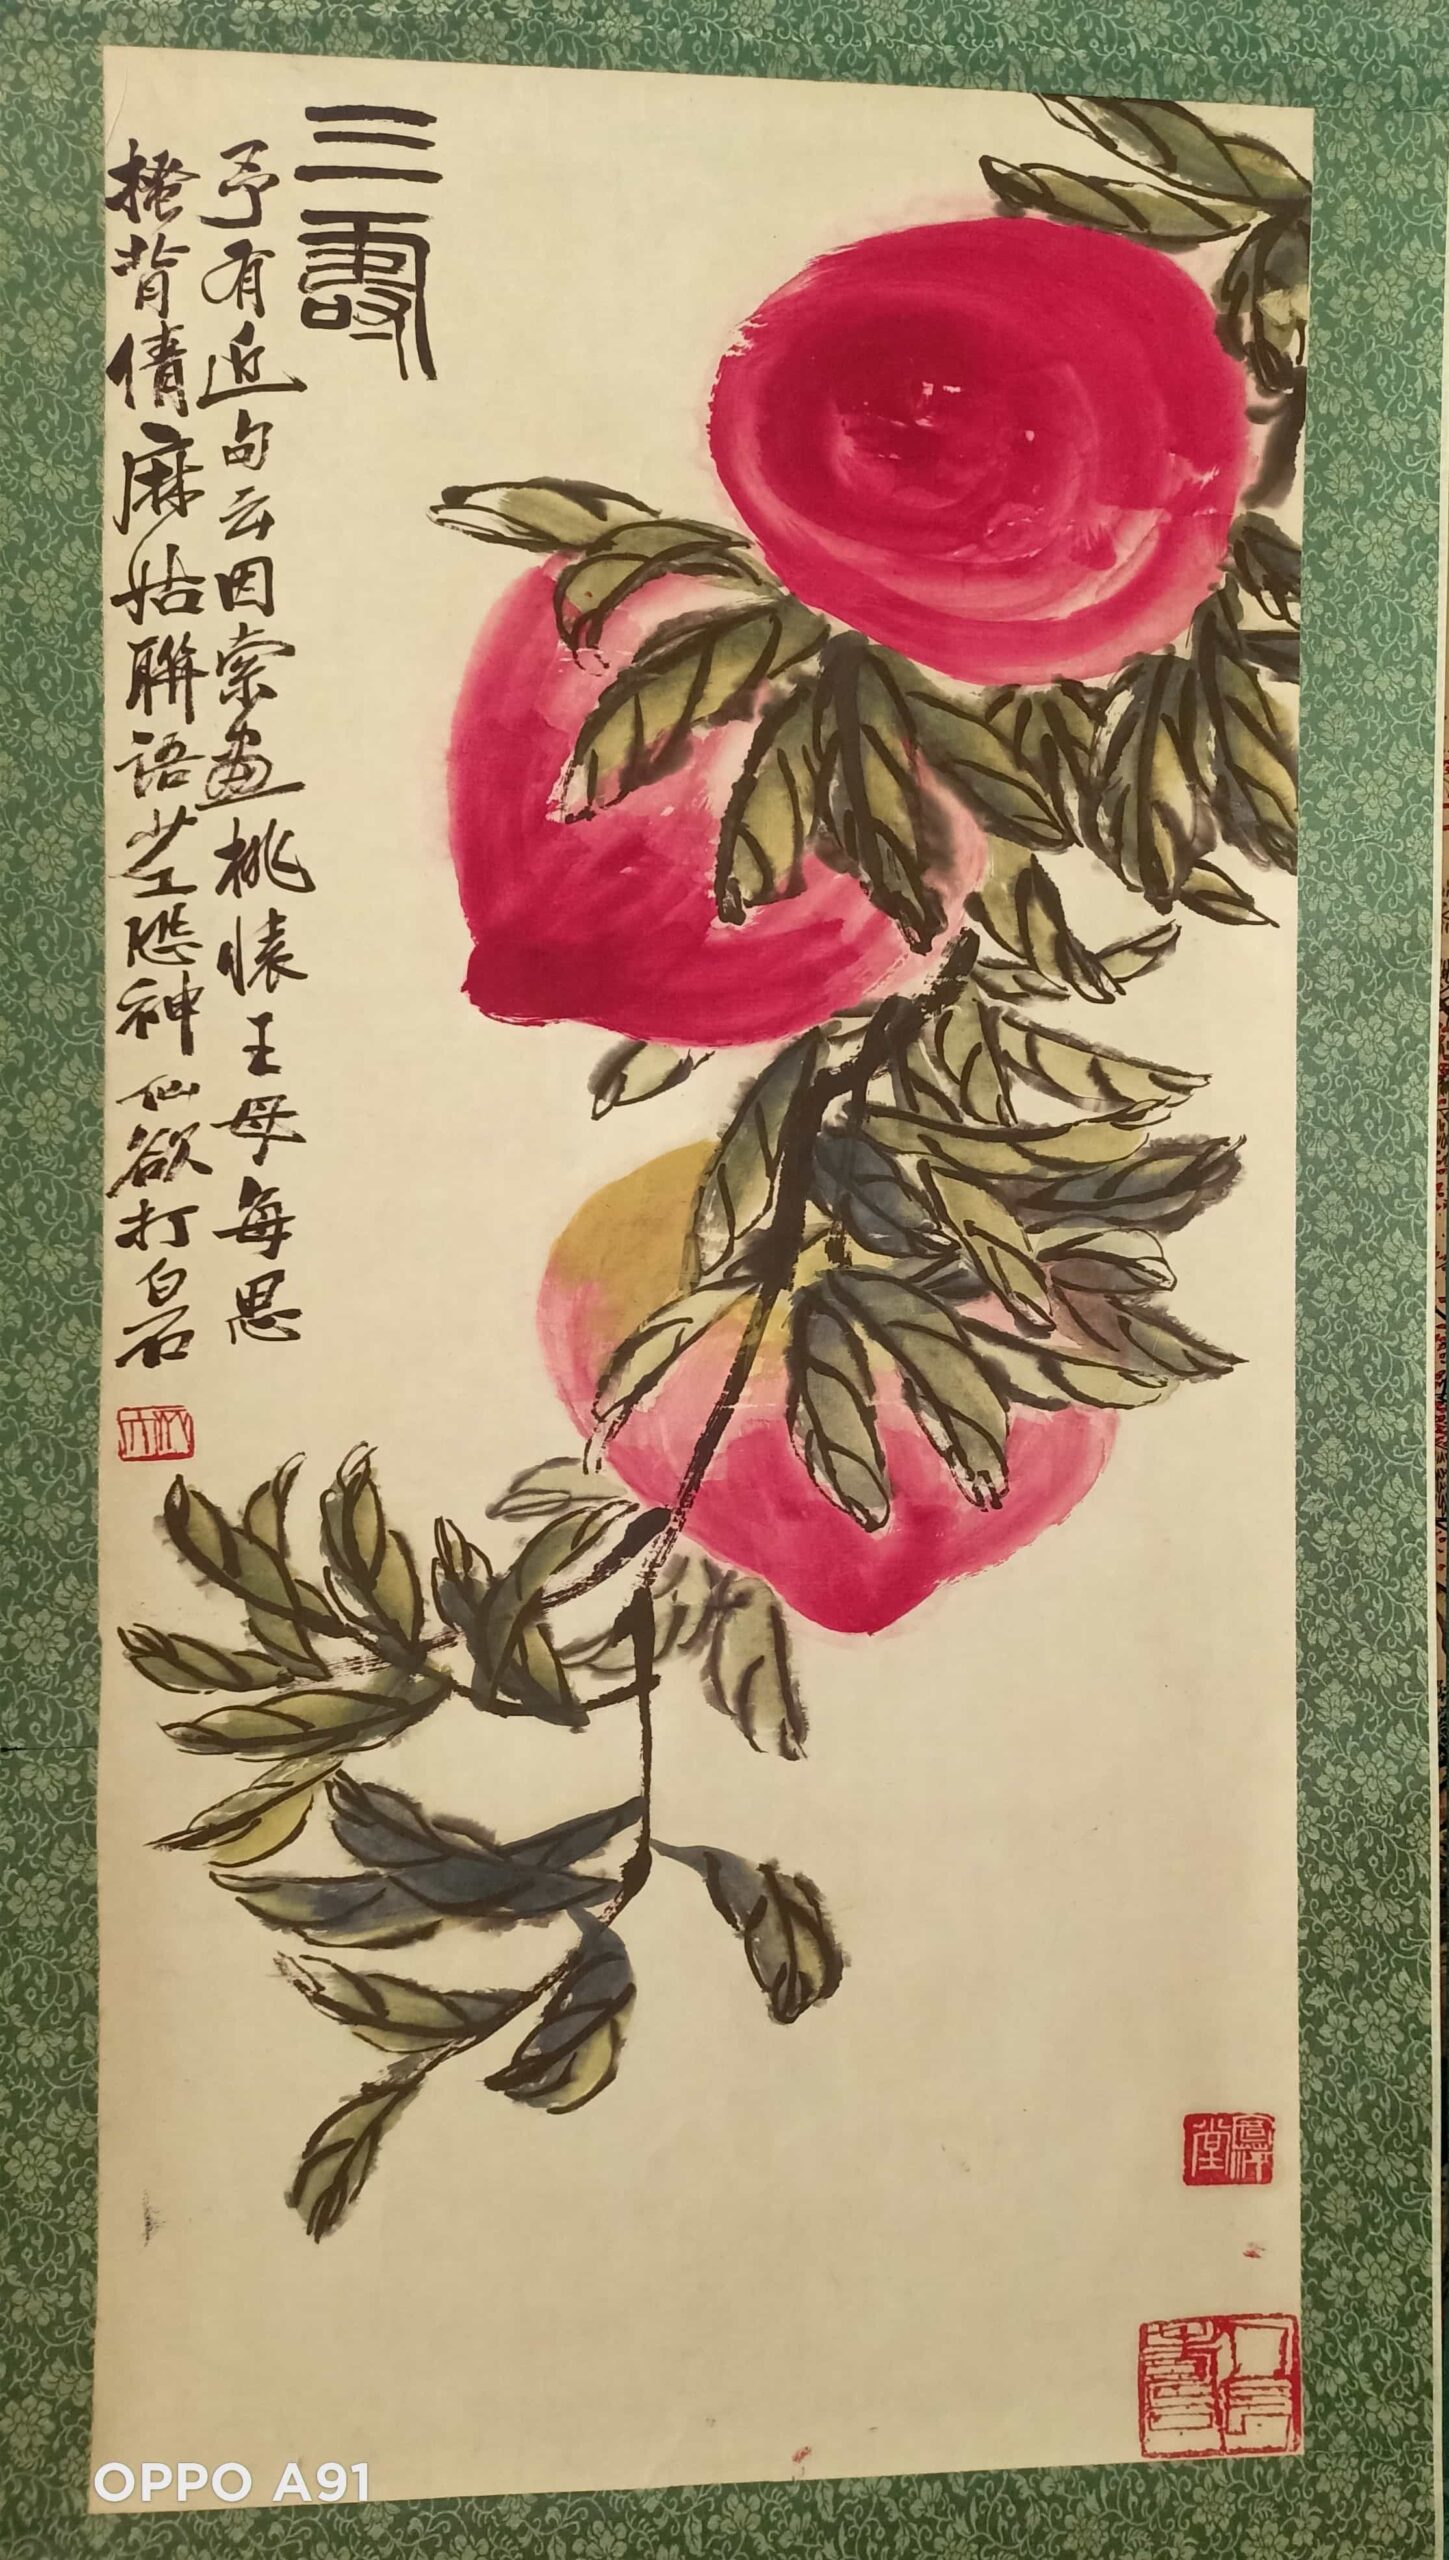 三壽
予有近句云因索畫桃懐王母每思
搔背倩麻姑聯語尘工慇神仙欲打白石
OPPO A91